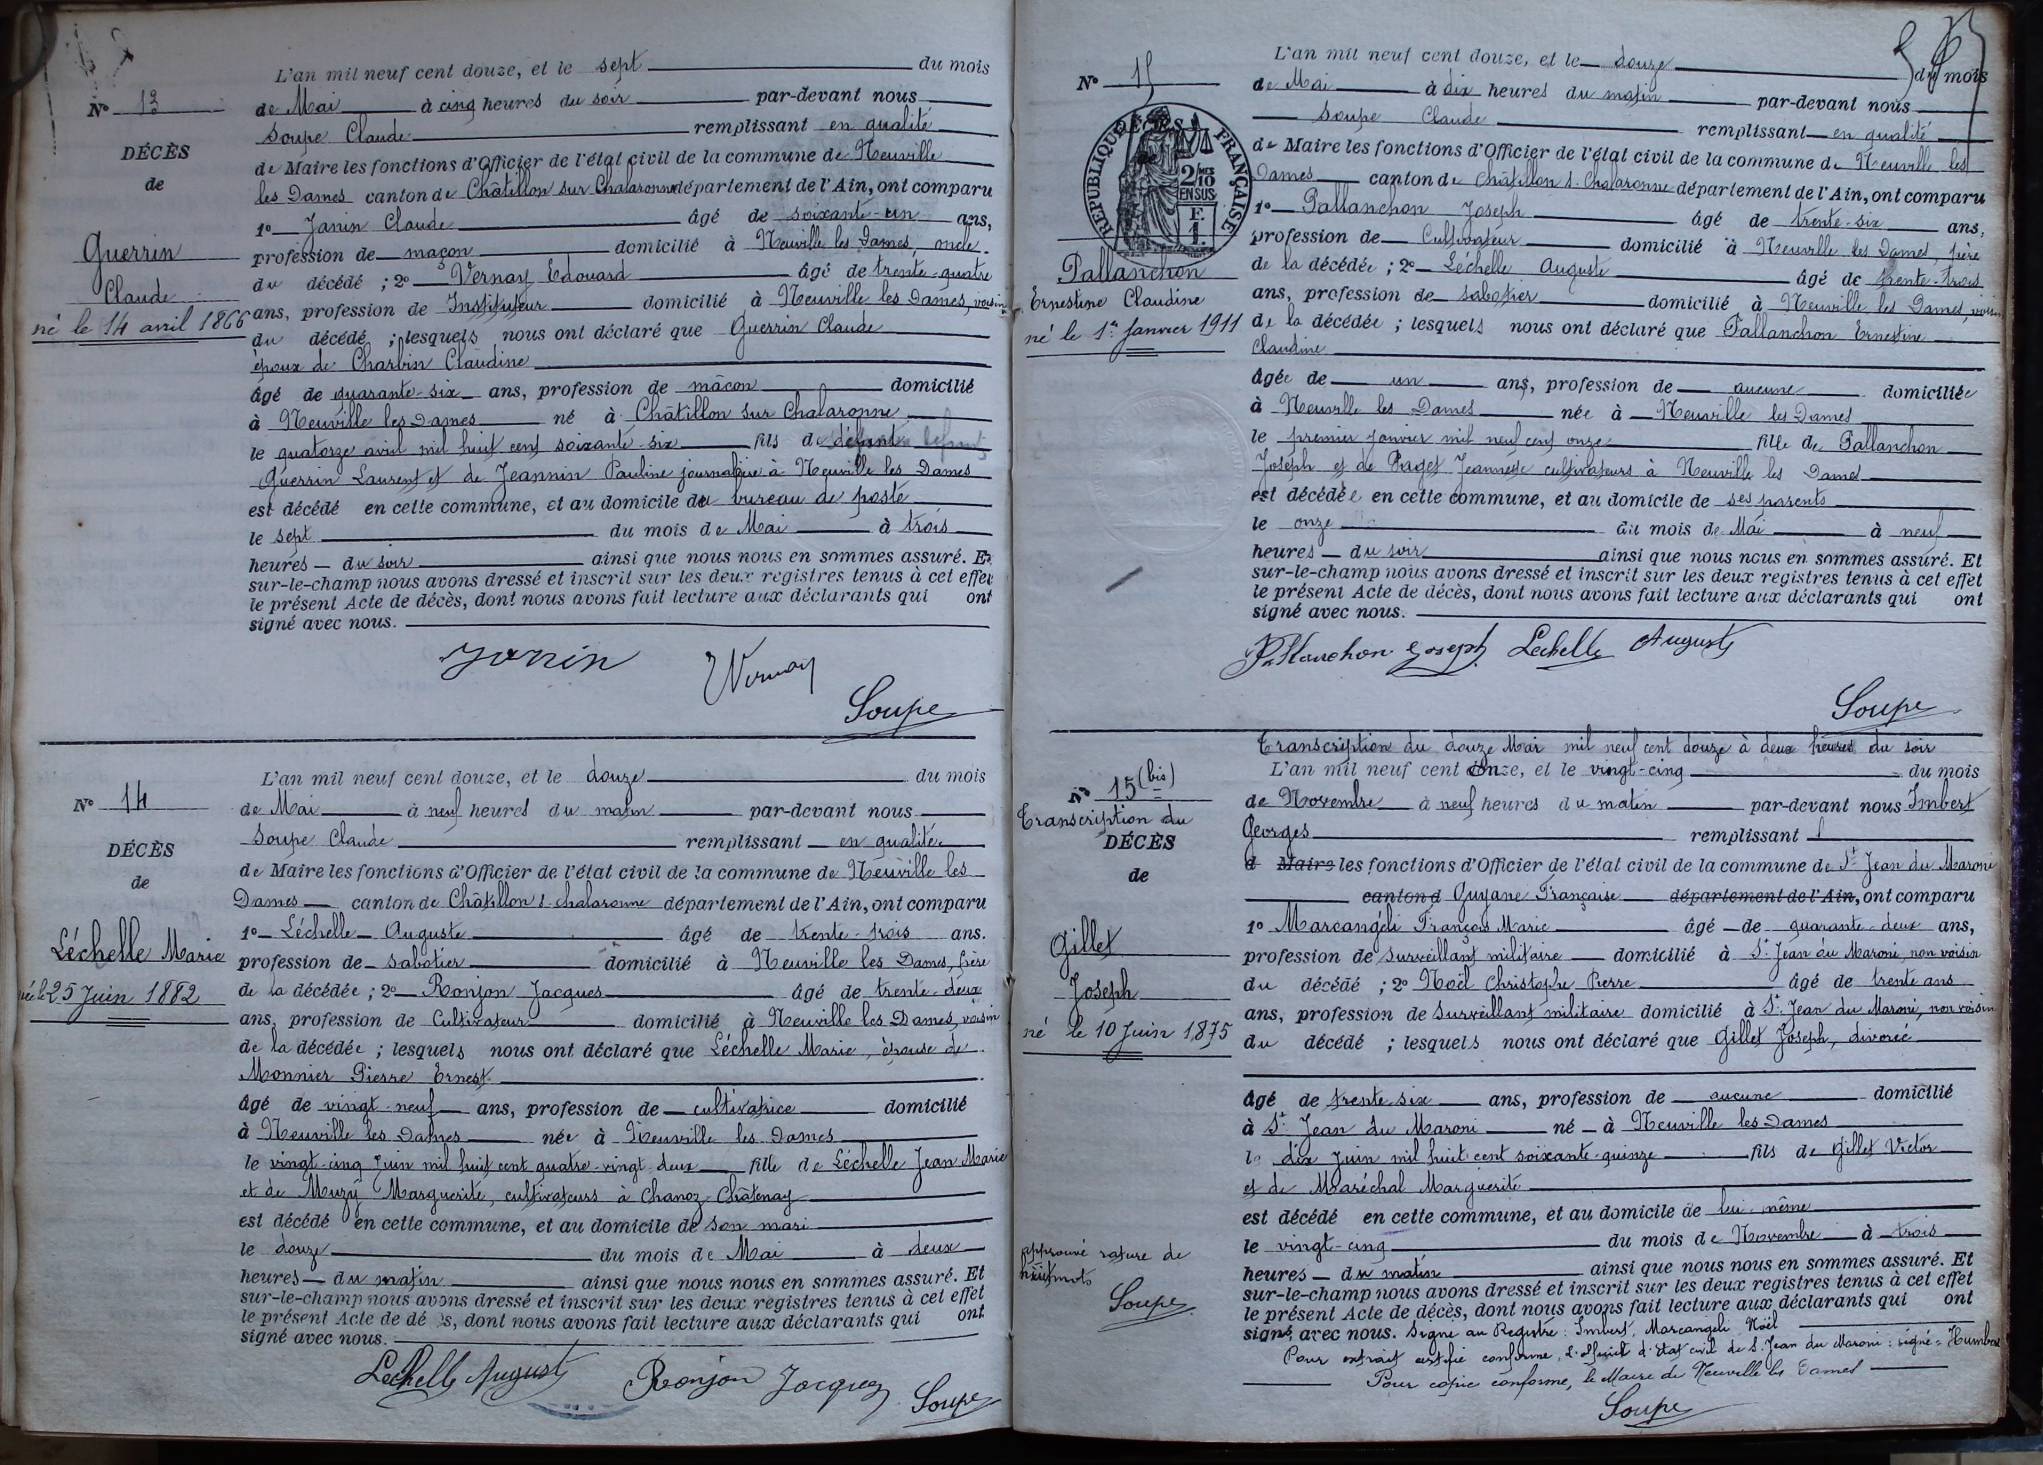 N° 13
DÉCÈS
de
Guerrin
Claude
né le 14 avril 1866
L'an mil neuf cent douze, et le sept du mois
de Mai à cinq heures du soir par-devant nous
Soupe Claude remplissant en qualité
de Maire les fonctions d'Officier de l'état civil de la commune de Neuville
les Dames canton de Châtillon sur Chalaronne département de l'Ain, ont comparu
1° Janin Claude âgé de soixante-un ans,
profession de maçon domicilié à Neuville les Dames, oncle
du décédé ; 2° Vernay Edouard âgé de trente-quatre
ans, profession de Instituteur domicilié à Neuville les Dames, voisin
du décédé ; lesquels nous ont déclaré que Guerrin Claude
époux de Charbin Claudine
âgé de quarante-six ans, profession de mâcon domicilié
à Neuville les Dames né à Châtillon sur Chalaronne
le quatorze avril mil huit cent soixante-six fils de défunt
Guerrin Laurent et de Jeannin Pauline journalière à Neuville les Dames
est décédé en cette commune, et au domicile du bureau de poste
le sept du mois de Mai à trois
heures du soir ainsi que nous nous en sommes assuré. Et
sur-le-champ nous avons dressé et inscrit sur les deux registres tenus à cet effet
le présent Acte de décès, dont nous avons fait lecture aux déclarants qui ont
signé avec nous.
Janin Vernay
Soupe
N° 14
DÉCÈS
de
Léchelle Marie
née le 25 Juin 1882
L'an mil neuf cent douze, et le douze du mois
de Mai à neuf heures du matin par-devant nous
Soupe Claude remplissant en qualité
de Maire les fonctions d'Officier de l'état civil de la commune de Neuville les
Dames canton de Châtillon s. chalaronne département de l'Ain, ont comparu
1° Léchelle Auguste âgé de trente-trois ans.
profession de sabotier domicilié à Neuville les Dames, frère
de la décédée ; 2° Ronjon Jacques âgé de trente-deux
ans, profession de Cultivateur domicilié à Neuville les Dames, voisin
de la décédée ; lesquels nous ont déclaré que Léchelle Marie, épouse de
Monnier Pierre Ernest
âgé de vingt-neuf ans, profession de cultivatrice domicilié
à Neuville les Dames née à Neuville les Dames
le vingt-cinq Juin mil huit cent quatre-vingt-deux fille de Léchelle Jean Marie
et de Muzy Marguerite, cultivateurs à Chanoz Châtenay
est décédé en cette commune, et au domicile de son mari
le douze du mois de Mai à deux
heures du matin ainsi que nous nous en sommes assuré. Et
sur-le-champ nous avons dressé et inscrit sur les deux registres tenus à cet effet
le présent Acte de dé s, dont nous avons fait lecture aux déclarants qui ont
signé avec nous.
Léchelle Auguste Ronjon Jacques Soupe
N° 15
RÉPUBLIQUE FRANÇAISE
2/10 MES EN SUS
F. 1.
DÉCÈS
de
Pallanchon
Ernestine Claudine
né le 1er Janvier 1911
L'an mil neuf cent douze, et le douze du mois
de Mai à dix heures du matin par-devant nous
Soupe Claude remplissant en qualité
de Maire les fonctions d'Officier de l'état civil de la commune de Neuville les
Dames canton de Châtillon s. Chalaronne département de l'Ain, ont comparu
1° Pallanchon Joseph âgé de trente-six ans,
profession de Cultivateur domicilié à Neuville les Dames, père
de la décédée ; 2° Léchelle Auguste âgé de trente-trois
ans, profession de sabotier domicilié à Neuville les Dames, voisin
de la décédée ; lesquels nous ont déclaré que Pallanchon Ernestine
Claudine
âgée de un ans, profession de aucune domiciliée
à Neuville les Dames née à Neuville les Dames
le premier Janvier mil neuf cent onze fille de Pallanchon
Joseph et de Paget Jeannette cultivateurs à Neuville les Dames
est décédée en cette commune, et au domicile de ses parents
le onze du mois de Mai à neuf
heures du soir ainsi que nous nous en sommes assuré. Et
sur-le-champ nous avons dressé et inscrit sur les deux registres tenus à cet effet
le présent Acte de décès, dont nous avons fait lecture aux déclarants qui ont
signé avec nous.
Pallanchon Joseph Lechelle Auguste
Soupe
N° 15 (bis)
Transcription du
DÉCÈS
de
Gillet
Joseph
né le 10 Juin 1875
approuvé rature de
huit mots
Soupe
Transcription du douze Mai mil neuf cent douze à deux heures du soir
L'an mil neuf cent onze, et le vingt-cinq du mois
de Novembre à neuf heures du matin par-devant nous Imbert
Georges remplissant
d Maire les fonctions d'Officier de l'état civil de la commune de St Jean du Maroni
canton d Guyane Française département de l'Ain, ont comparu
1° Marcangéli François Marie âgé de quarante-deux ans,
profession de surveillant militaire domicilié à St Jean du Maroni, non voisin
du décédé ; 2° Noël Christophe Pierre âgé de trente ans
ans, profession de surveillant militaire domicilié à St Jean du Maroni, non voisin
du décédé ; lesquels nous ont déclaré que Gillet Joseph, divorcé
âgé de trente-six ans, profession de aucune domicilié
à St Jean du Maroni né à Neuville les Dames
le dix Juin mil huit cent soixante-quinze fils de Gillet Victor
et de Maréchal Marguerite
est décédé en cette commune, et au domicile de lui-même
le vingt-cinq du mois de Novembre à trois
heures du matin ainsi que nous nous en sommes assuré. Et
sur-le-champ nous avons dressé et inscrit sur les deux registres tenus à cet effet
le présent Acte de décès, dont nous avons fait lecture aux déclarants qui ont
signé avec nous. Signé au Registre : Imbert, Marcangeli, Noël
Pour extrait certifié conforme, L'officier d'Etat civil de St Jean du Maroni : signé =
Pour copie conforme, le Maire de Neuville les Dames
Soupe